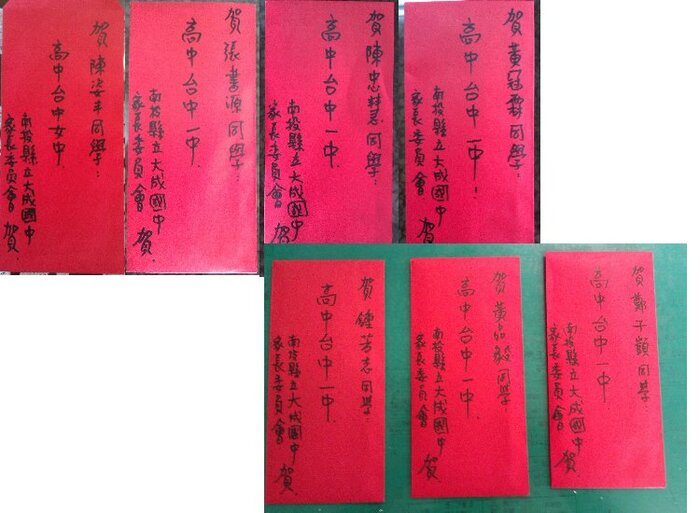 賀陳姿丰同學：
高中台中女中.
南投縣立大成國中
家長委員會 賀.
賀張書源同學：
高中台中一中.
南投縣立大成國中
家長委員會 賀.
賀陳忠慧同學：
高中台中一中.
南投縣立大成國中
家長委員會 賀
賀黃冠霖同學：
高中台中一中！
南投縣立大成國中
家長委員會 賀.
賀鍾芳志同學：
高中台中一中.
南投縣立大成國中
家長委員會 賀.
賀黃品毅同學：
高中台中一中.
南投縣立大成國中
家長委員會 賀.
賀鄭子同學：
高中台中一中.
南投縣立大成國中
家長委員會 賀.